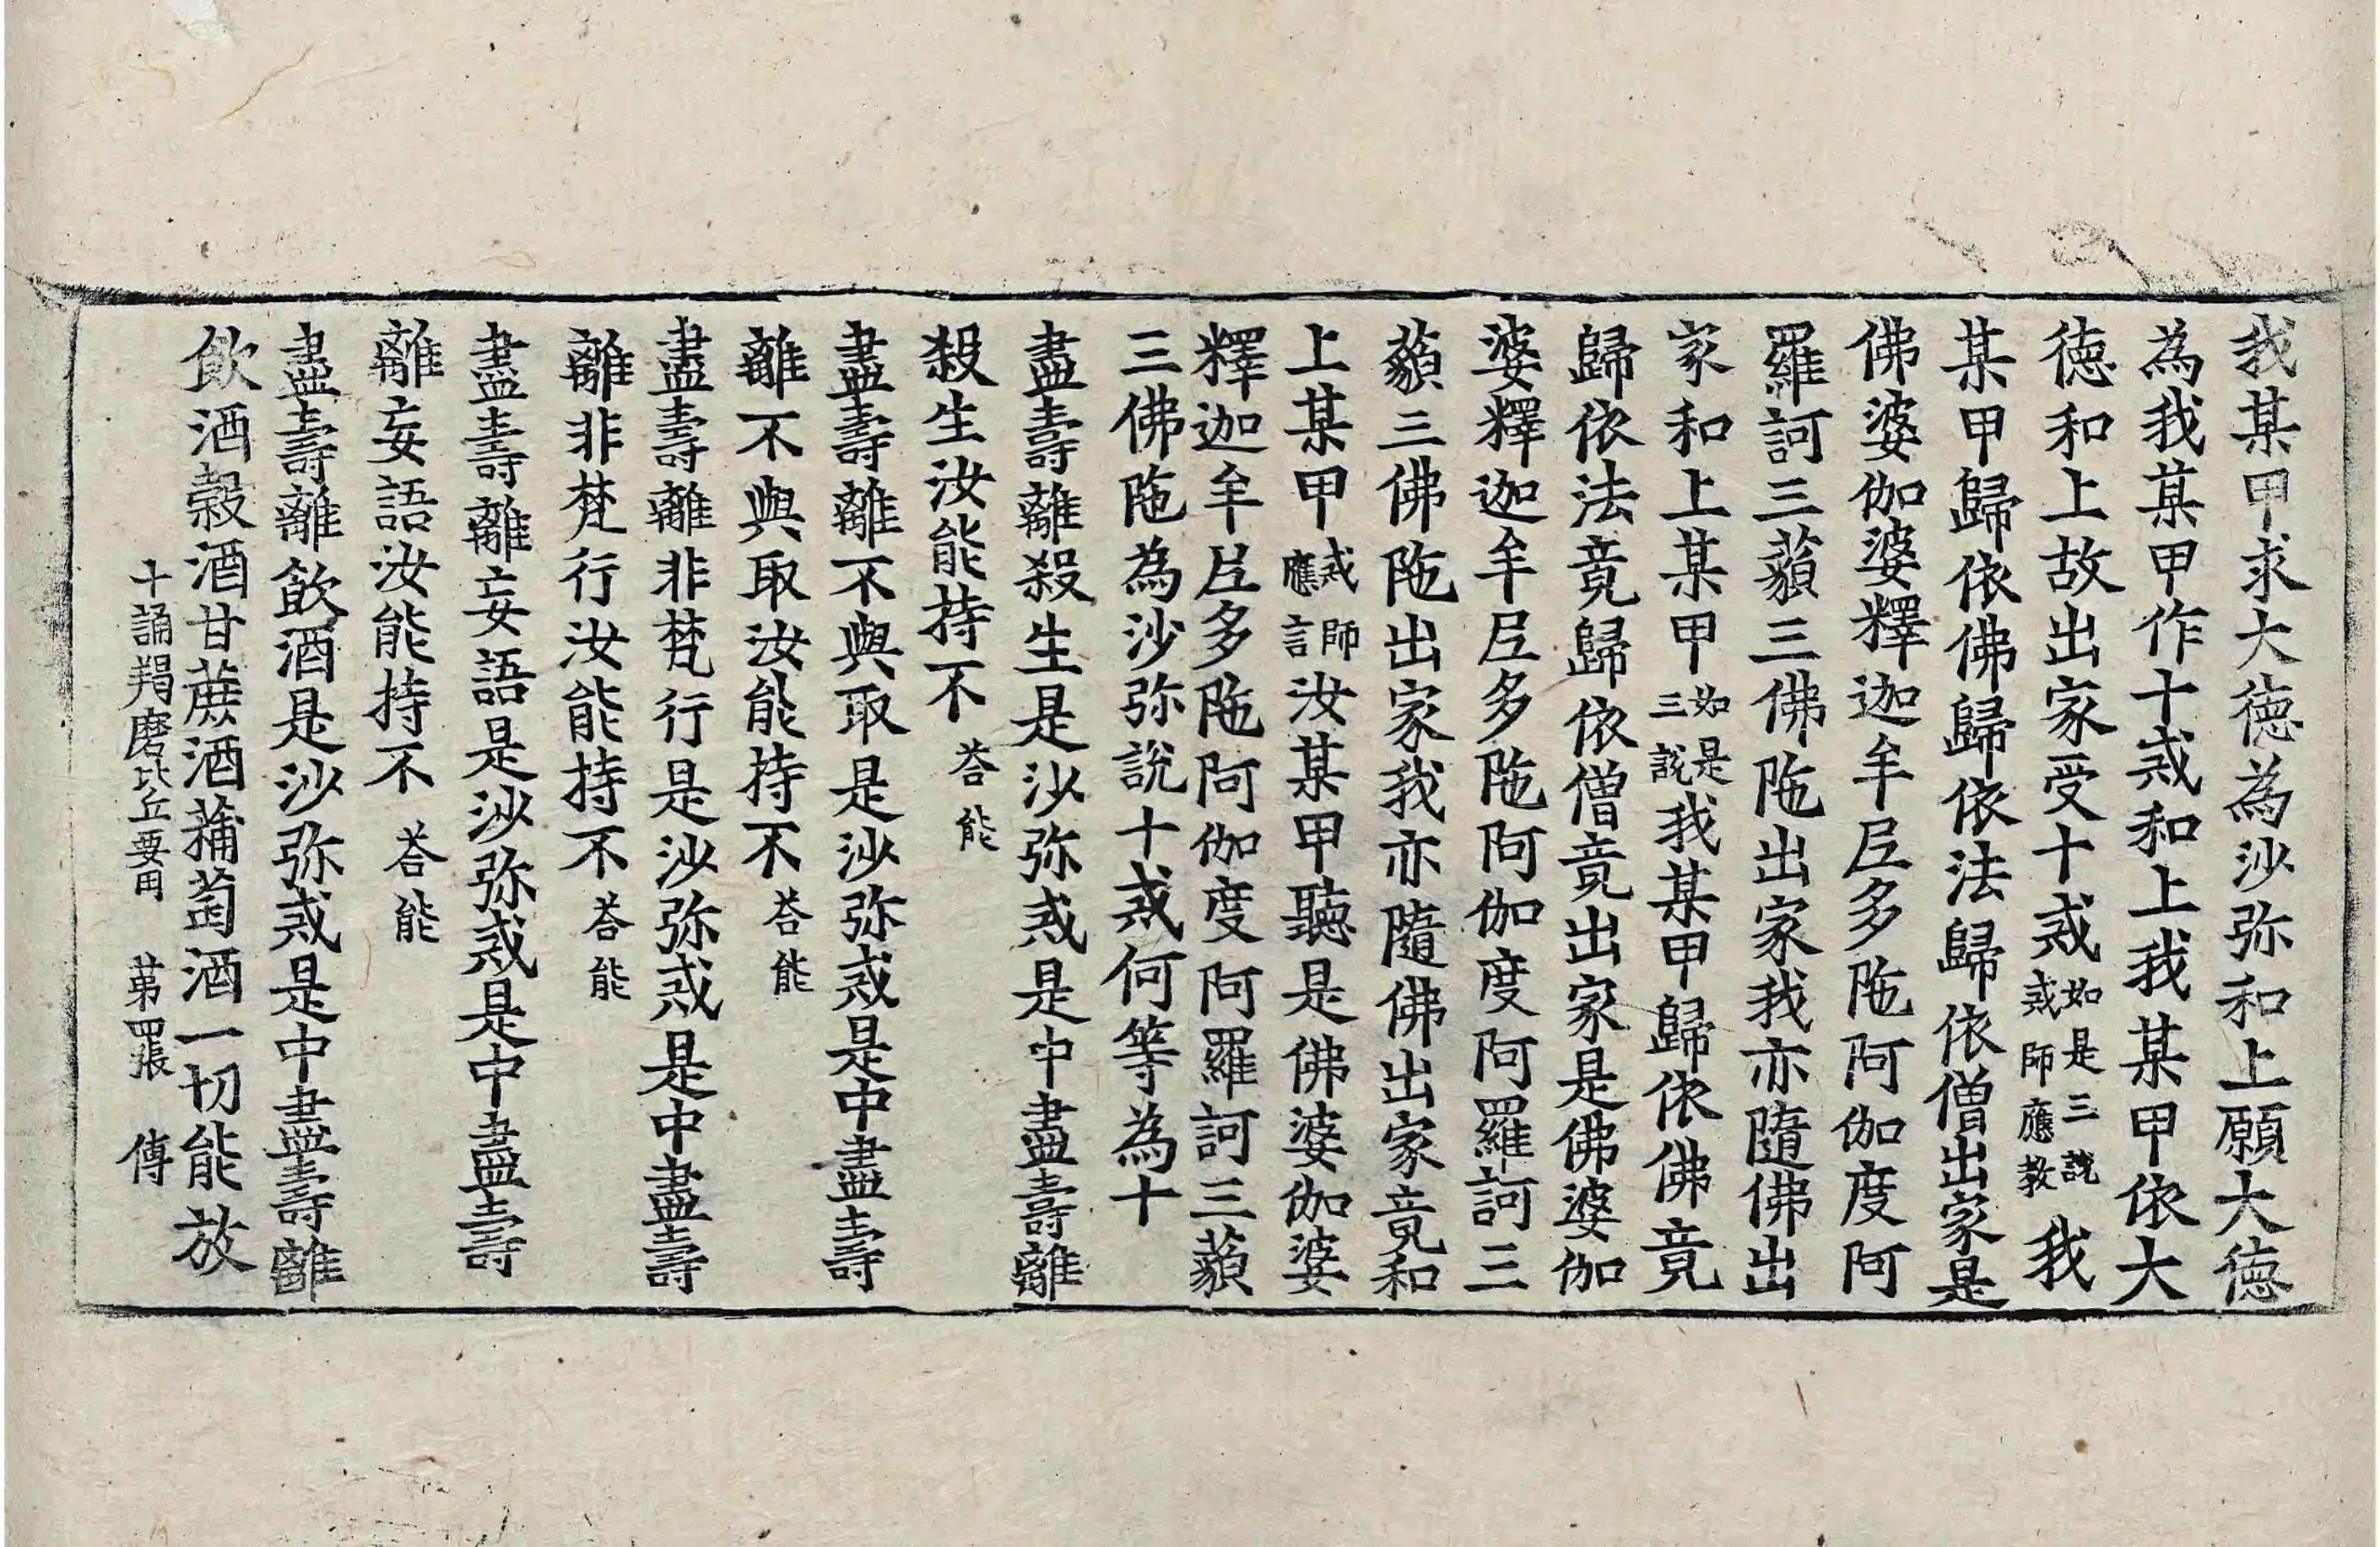 我某甲求大德為沙弥和上願大德
為我某甲作十戒和上我某甲依大
德和上故出家受十戒如是三說戒師應教我
某甲歸依佛歸依法歸依僧出家是
佛婆伽婆釋迦牟尼多陁阿伽度阿
羅訶三藐三佛陁出家我亦隨佛出
家和上某甲如是三說我某甲歸依佛竟
歸依法竟歸依僧竟出家是佛婆伽
婆釋迦牟尼多陁阿伽度阿羅訶三
藐三佛陁出家我亦隨佛出家竟和
上某甲戒師應言汝某甲聽是佛婆伽婆
釋迦牟尼多陁阿伽度阿羅訶三藐
三佛陁為沙弥說十戒何等為十
盡壽離殺生是沙弥戒是中盡壽離
殺生汝能持不荅能
盡壽離不與取是沙弥戒是中盡壽
離不與取汝能持不荅能
盡壽離非梵行是沙弥戒是中盡壽
離非梵行汝能持不荅能
盡壽離妄語是沙弥戒是中盡壽
離妄語汝能持不荅能
盡壽離飲酒是沙弥戒是中盡壽離
飲酒糓酒甘蔗酒蒱萄酒一切能放
十誦羯磨比丘要用 苐四張 傅